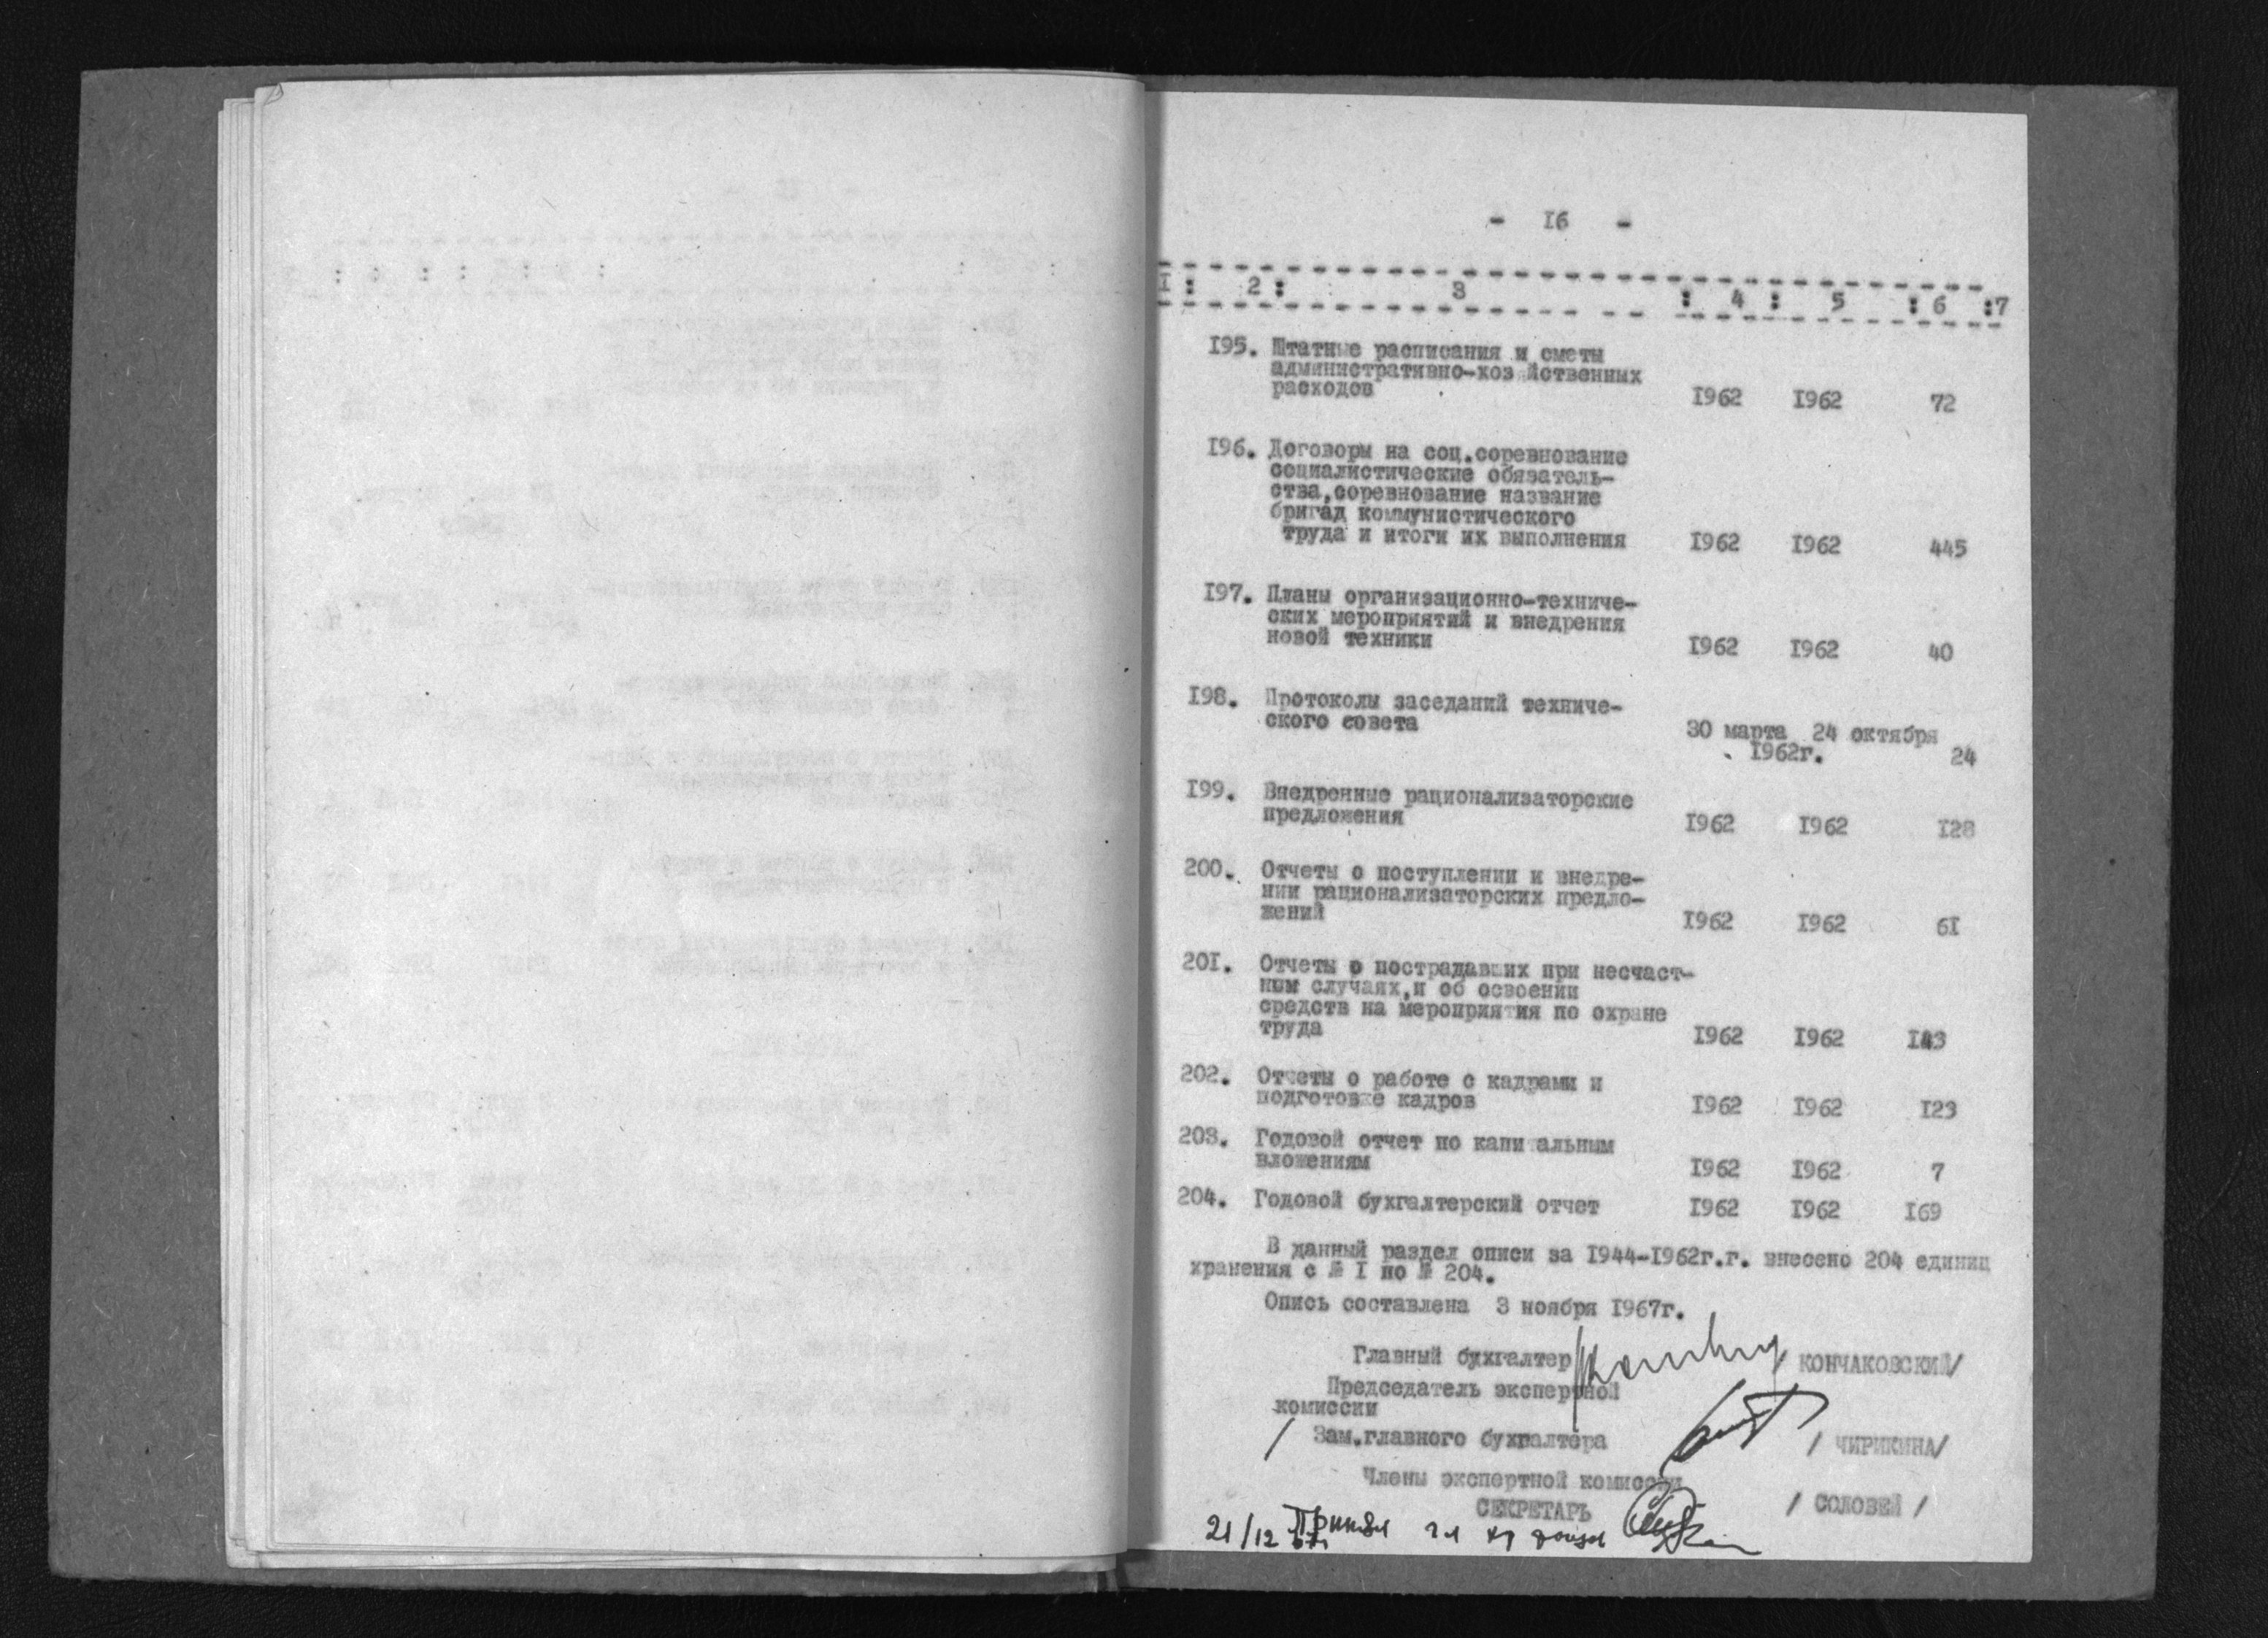 - I6 -
I : 2 : 3 : 4 : 5 : 6 :7
I95. Штатные расписания и сметы
административно-хозяйственных
расходов I962 I962 72
I96. Договоры на соц.соревнование
социалистические обязатель-
ства,соревнование название
бригад коммунистического
труда и итоги их выполнения I962 I962 445
I97. Планы организационно-техниче-
ских мероприятий и внедрения
новой техники I962 I962 40
I98. Протоколы заседаний техниче-
ского совета 30 марта 24 октября
I962г. 24
I99. Внедренные рационализаторские
предложения I962 I962 I28
200. Отчеты о поступлении и внедре-
нии рационализаторских предло-
жений I962 I962 6I
20I. Отчеты о пострадавших при несчаст-
ным случаях,и об освоении
средств на мероприятия по охране
труда I962 I962 I43
202. Отчеты о работе с кадрами и
подготовке кадров I962 I962 I23
203. Годовой отчет по капитальным
вложениям I962 I962 7
204. Годовой бухгалтерский отчет I962 I962 I69
В данный раздел описи за I944-I962г.г. внесено 204 единиц
хранения с № I по № 204.
Опись составлена 3 ноября I967г.
Главный бухгалтер / КОНЧАКОВСКИЙ/
Председатель экспертной
комиссии
/ Зам.главного бухгалтера / ЧИРИКИНА/
Члены экспертной комиссии
СЕКРЕТАРЬ / СОЛОВЕЙ /
21/12 67 Принял